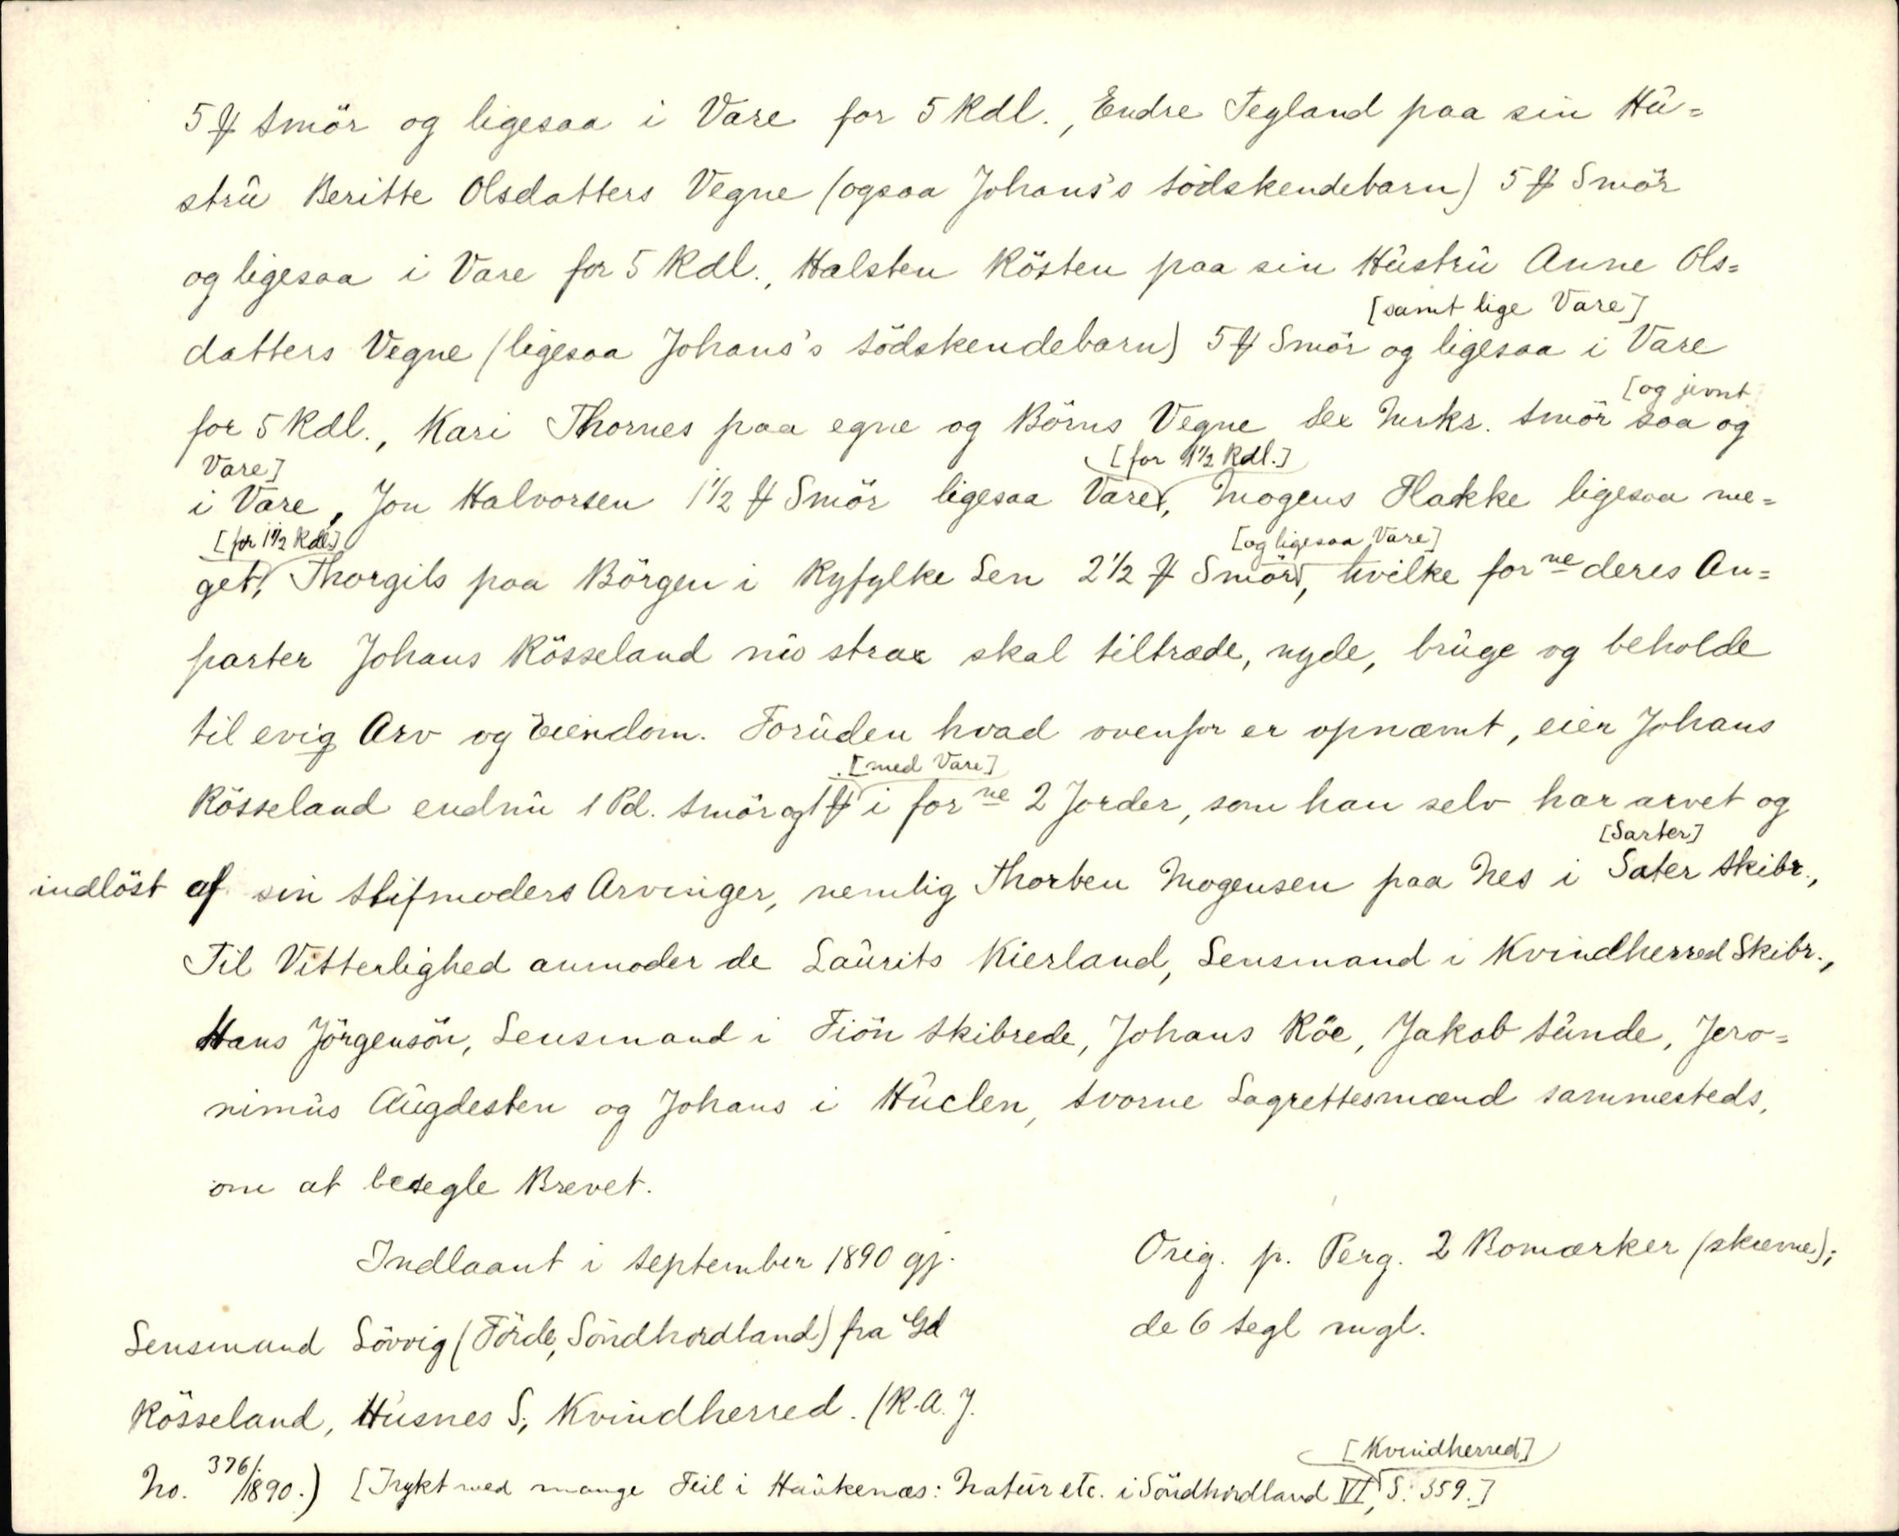 5 ℔ Smör og ligesaa i Vare for 5 Rdl., Endre Tegland paa sin Hû=
strû Beritte Olsdatters Vegne (ogsaa Johans's Södskendebarn) 5 ℔ Smör
og ligesaa i Vare for 5 Rdl., Halsten Rösten paa sin Hûstrû Anne Ols=
[samt lige Vare]
datters Vegne (ligesaa Johans's Södskendebarn) 5 ℔ Smör og ligesaa i Vare
[og jevnt
for 5 Rdl., Kari Thornes paa egne og Börns Vegne sex Mrks. Smör saa og
Vare] [for 1½ Rdl.]
i Vare, Jon Halvorsen 1½ ℔ Smör ligesaa Vare, Mogens Hakke ligesaa me=
[for 1½ Rdl.] [og ligesaa Vare]
get, Thorgils paa Börgen i Ryfylke Len 2½ ℔ Smör, hvilke forne deres An=
parter Johans Rösseland nû strax skal tiltræde, nyde, brûge og beholde
til evig Arv og Eiendom. Forûden hvad ovenfor er opnæmt, eier Johans
[med Vare]
Rösseland endnû 1 Pd. Smör og 1 ℔ i forne 2 Jorder, som han selv har arvet og
[Sarter]
indlöst af sin Stifmoders Arvinger, nemlig Thorben Mogensen paa Nes i Sater Skibr.,
Til Vitterlighed anmoder de Laûrits Kierland, Lensmand i Kvindherred Skibr.,
Hans Jörgensön, Lensmand i Fiön Skibrede, Johans Röe, Jakob Sûnde, Jero=
nimûs Aûgdesten og Johans i Hûclen, svorne Lagrettesmænd sammesteds,
om at besegle Brevet.
Indlaant i September 1890 gj.
Lensmand Lövvig (Förde, Söndhordland) fra Gd
Rösseland, Hûsnes S., Kvindherred. (R.A. J.
No. 376/1890.)
Orig. p. Perg. 2 Bomærker (skrevne);
de 6 Segl mgl.
[Kvindherred]
[Trykt med mange Feil i Haûkenæs: Natûr etc. i Söndhordland VI, S. 359.]